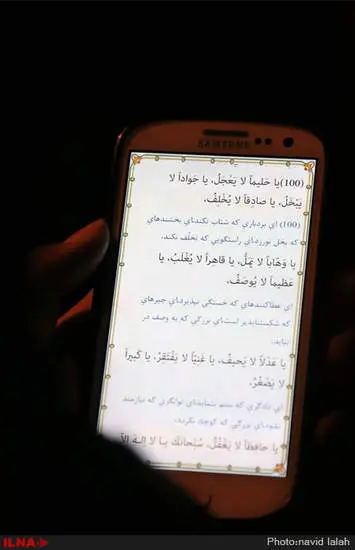 SAMSUNG
(100) يا حَليماً لا يَعْجَلُ، يا جَواداً لا
يَبْخَلُ، يا صادِقاً لا يُخْلِفُ،
(100) اي بردباري که شتاب نکنداي بخشنده‌اي
که بخل نورزداي راستگويي که تخلف نکند.
يا وَهّاباً لا يَمَلُّ، يا قاهِراً لا يُغْلَبُ، يا
عَظيماً لا يُوصَفُ،
اي عطاکننده‌اي که خستگي نپذيرداي چيره‌اي
که شکست‌ناپذير است‌اي بزرگي که به وصف در
نيايد.
يا عَدْلاً لا يَحيفُ، يا غَنِيّاً لا يَفْتَقِرُ، يا کَبيراً
لا يَصْغُرُ،
اي دادگري که ستم ننمايداي توانگري که نيازمند
نشوداي بزرگي که کوچک نگردد.
يا حافِظاً لا يَغْفُلُ، سُبْحانَكَ يا لا إِلهَ إِلاّ
ILNA
Photo:navid lalah